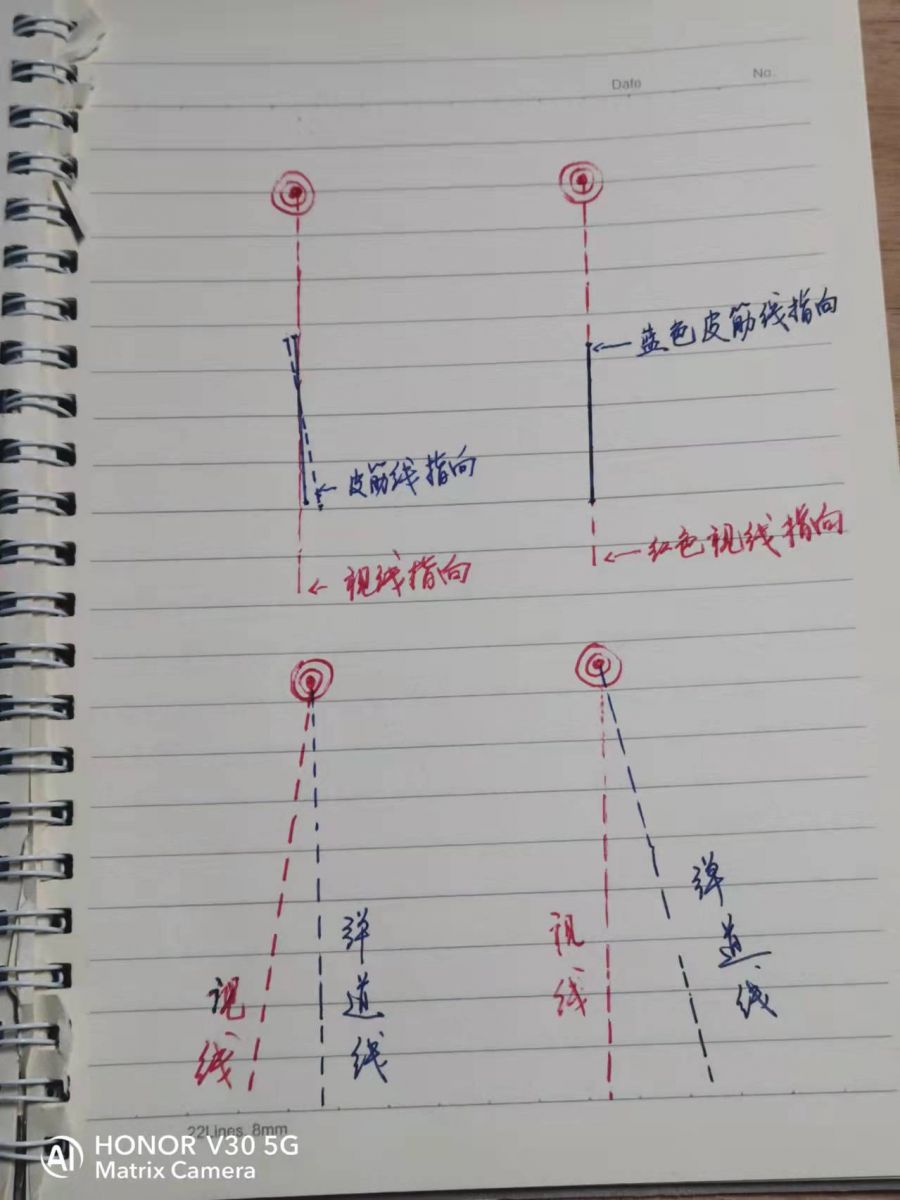 Date
No.
蓝色皮筋线指向
皮筋线指向
红色视线指向
视线指向
弹道线
弹道线
视线
视线
22Lines 8mm
AI
HONOR V30 5G
Matrix Camera